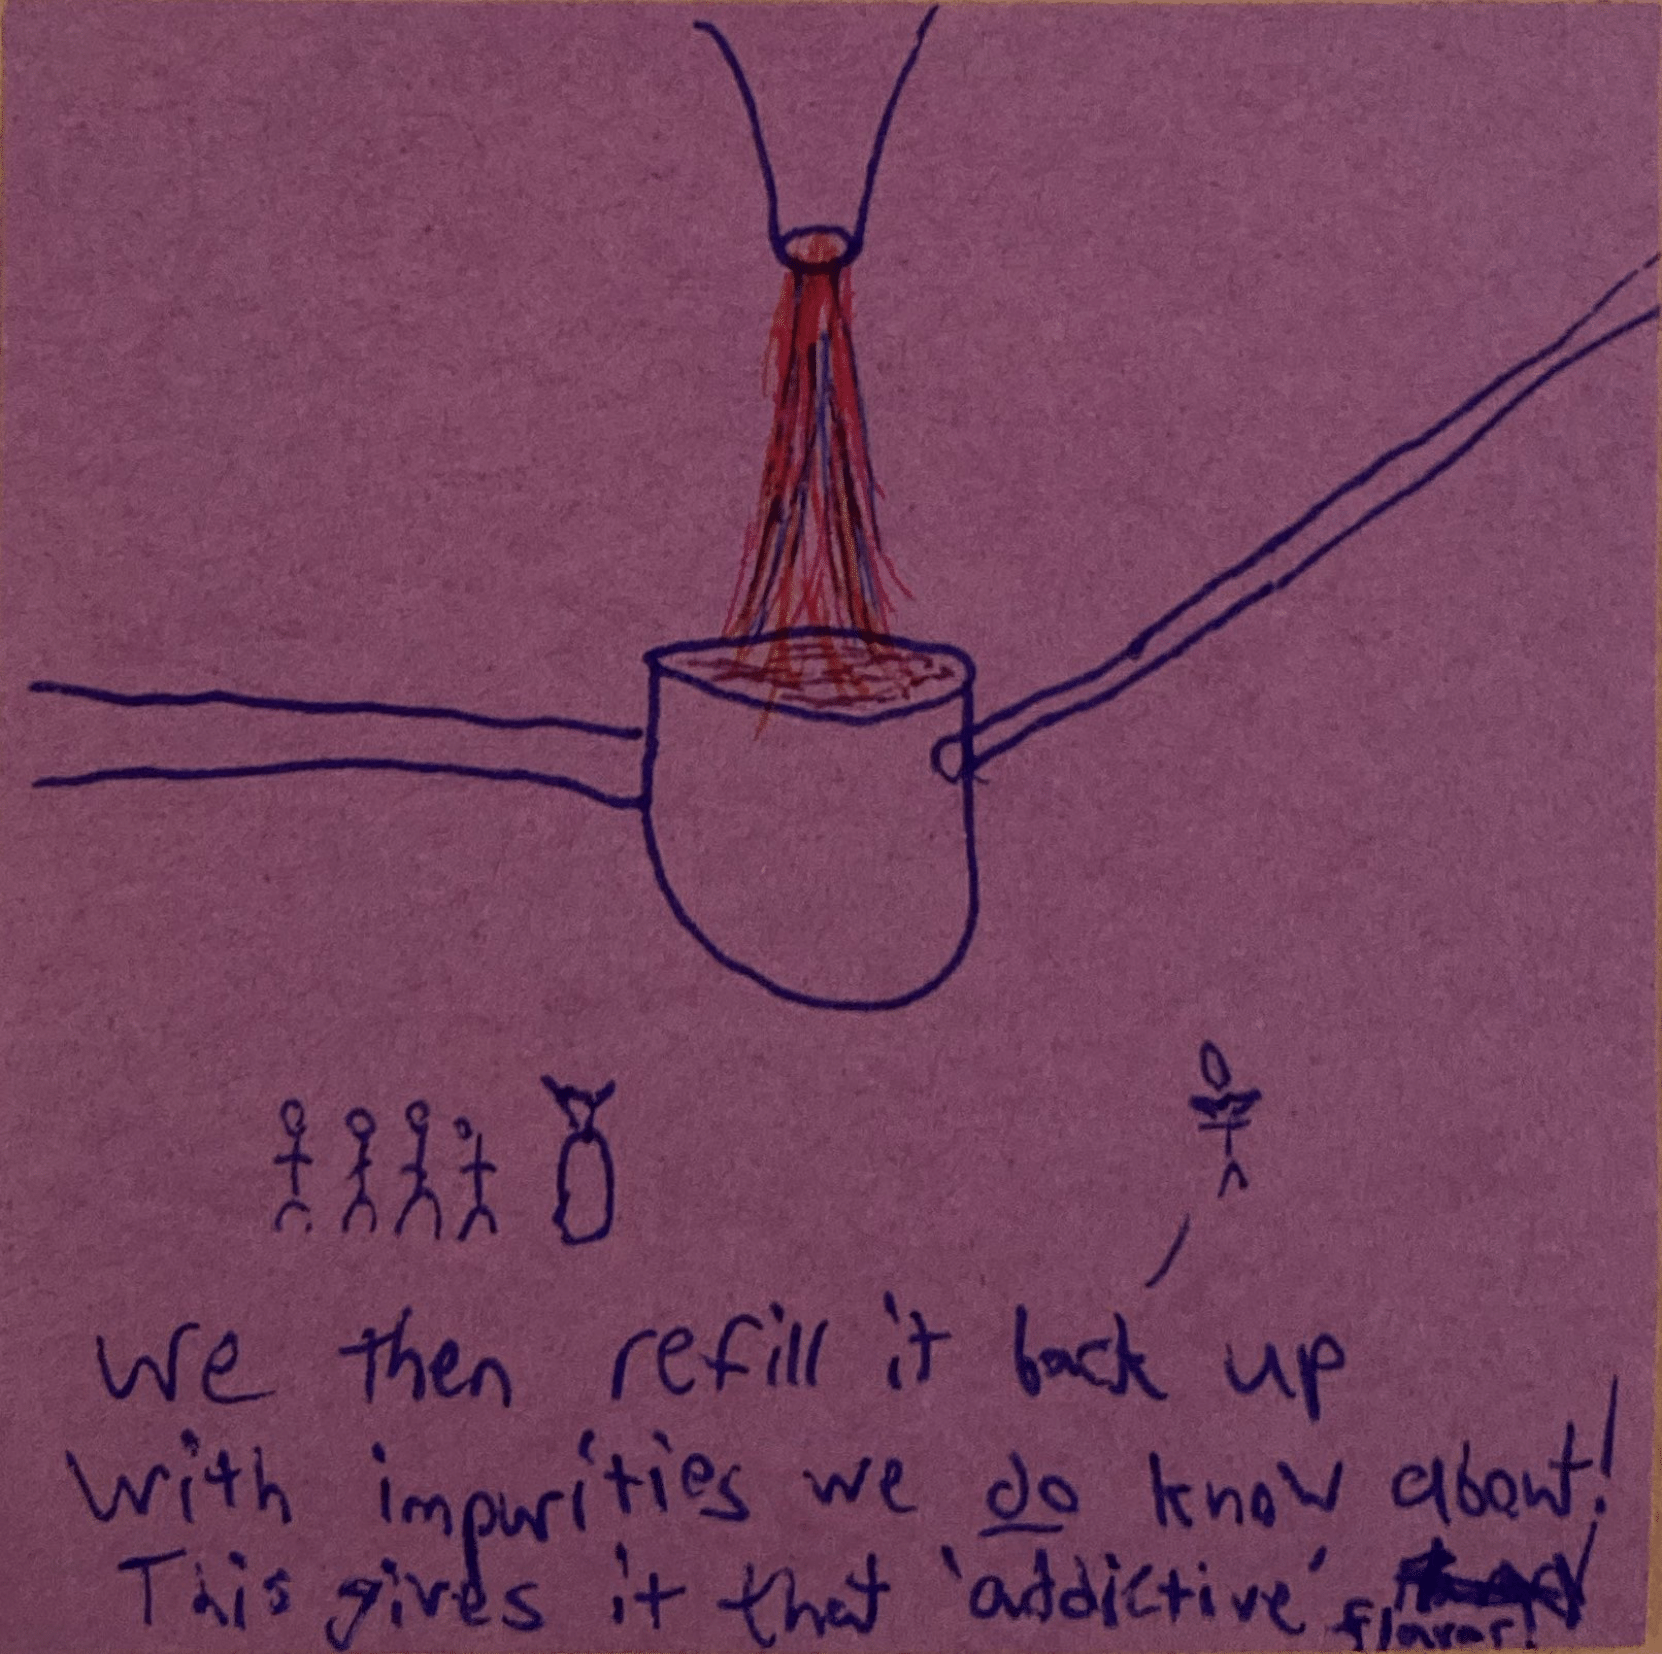 we then refill it back up
with impurities we do know about!
This gives it that 'addictive'
flavor!